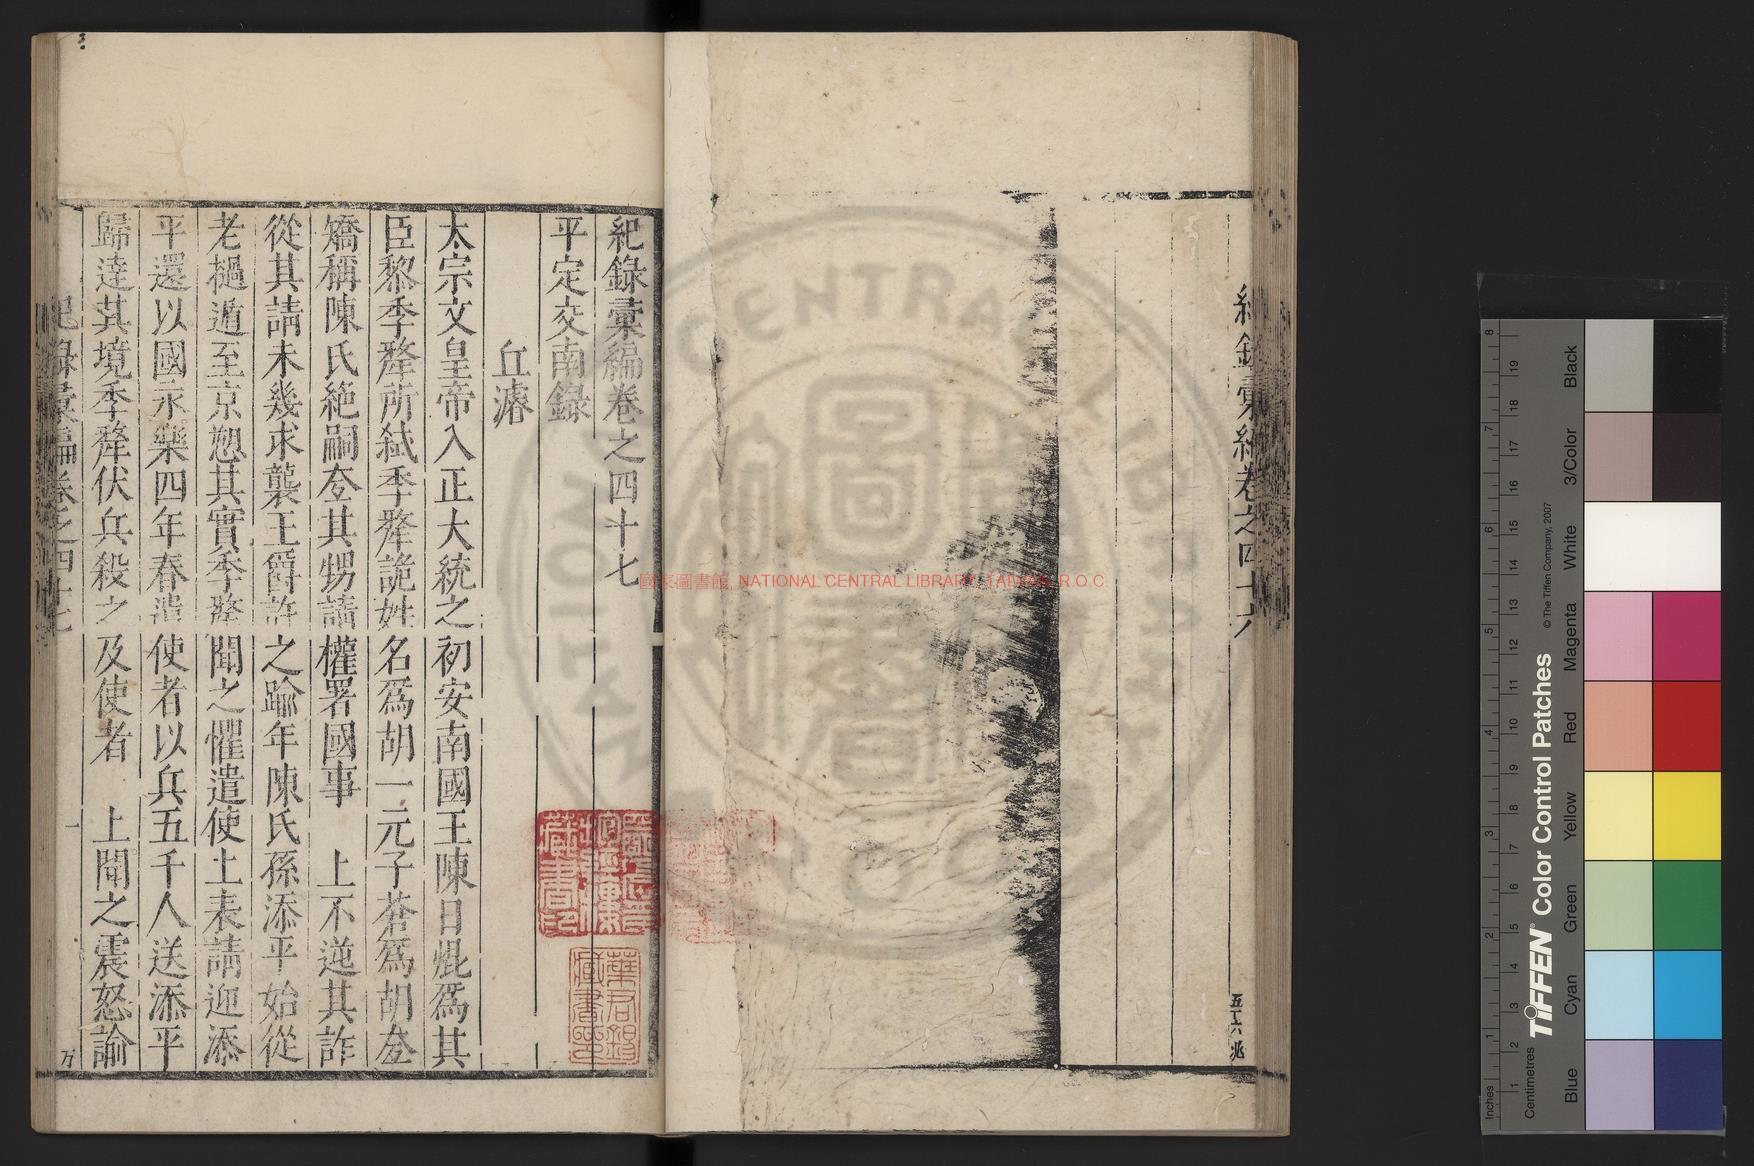 紀錄彙編卷之四十六
五十六
紀錄彙編卷之四十七
平定交南錄
丘濬
太宗文皇帝入正大統之初安南國王陳日焜爲其
臣黎季犛所弑季犛詭姓名爲胡一元子蒼爲胡𡗨
矯稱陳氏絶嗣𡗨其甥請權署國事 上不逆其詐
從其請未幾求襲王爵許之踰年陳氏孫添平始從
老撾遁至京愬其實季犛聞之懼遣使上表請迎添
平還以國永樂四年春遣使者以兵五千人送添平
歸達其境季犛伏兵殺之及使者 上聞之震怒諭
紀錄彙編卷之四十七
一
万
葉君錫藏書印
藏書印
國家圖書館 NATIONAL CENTRAL LIBRARY, TAIWAN, R.O.C
TIFFEN® Color Control Patches
© The Tiffen Company, 2007
Inches
Centimetres
1 2 3 4 5 6 7 8
1 2 3 4 5 6 7 8 9 10 11 12 13 14 15 16 17 18 19
Blue
Cyan
Green
Yellow
Red
Magenta
White
3/Color
Black